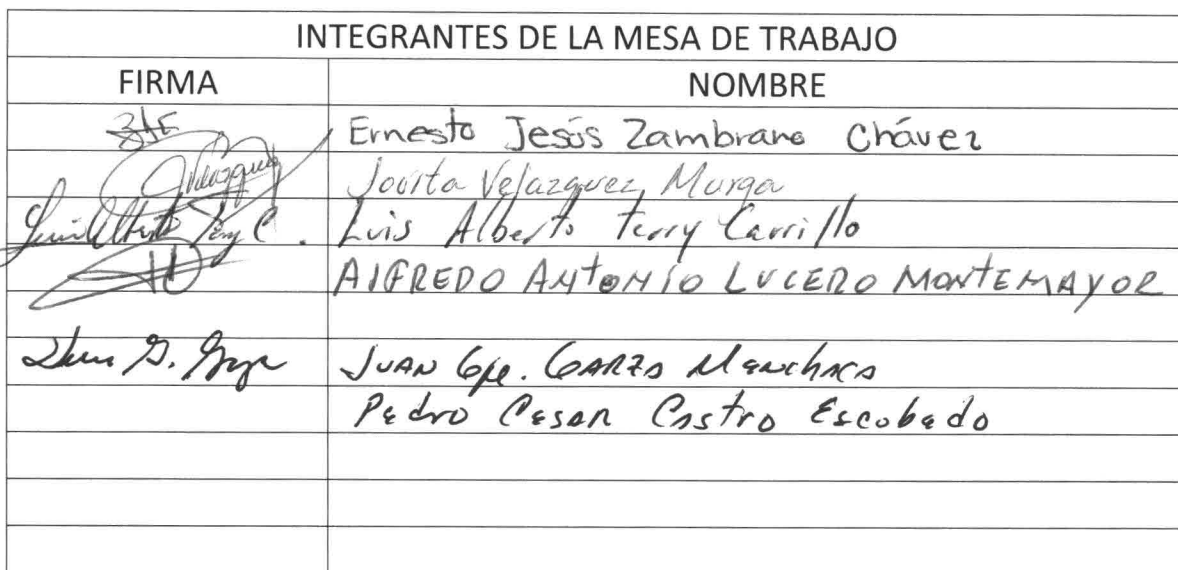 INTEGRANTES DE LA MESA DE TRABAJO
FIRMA NOMBRE
Ernesto Jesús Zambrano Chávez
Jovita Velazquez Murga
Luis Alberto Terry C. Luis Alberto Terry Carrillo
AlFREDO ANtONIO LUCERO MONTEMAYOR
JUAN Gpe. GARZA Menchaca
Pedro Cesar Castro Escobedo